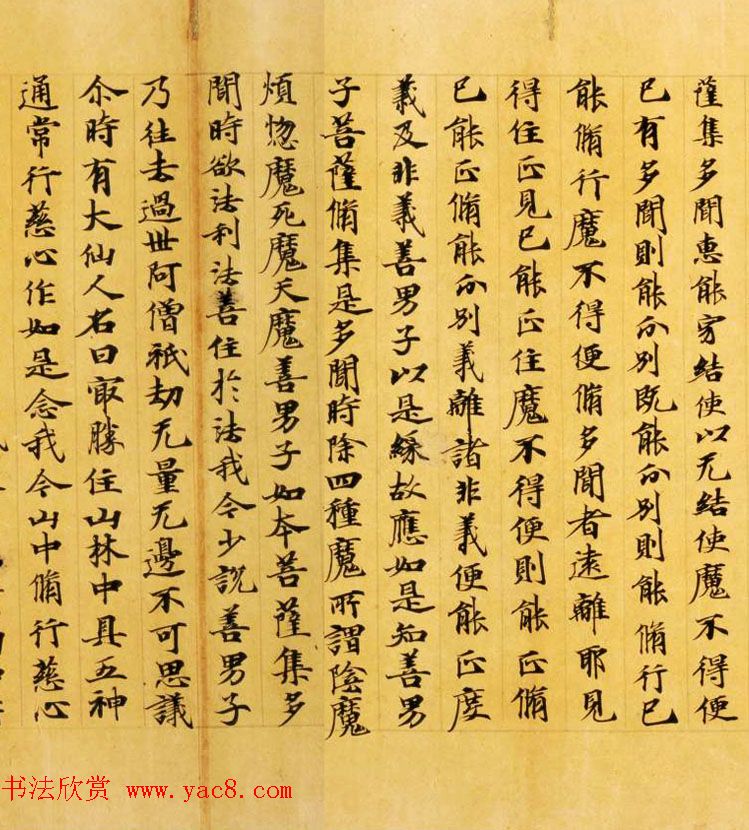 薩集多聞惠能結使以无結使魔不得便
已有多聞則能分別既能分別則能脩行已
能脩行魔不得便脩多聞者遠離耶見
得住正見已能正住魔不得便則能正脩
已能正脩能分別義離諸非義便能正度
義及非義善男子以是緣故應如是知善男
子菩薩脩集是多聞時除四種魔所謂陰魔
煩惱魔死魔天魔善男子如夲菩薩集多
聞時欲法利法善住於法我今少說善男子
乃往去過世阿僧祇劫无量无邊不可思議
尒時有大仙人名曰㝡勝住山林中具五神
通常行慈心作如是念我今山中脩行慈心
书法欣赏 www.yac8.com